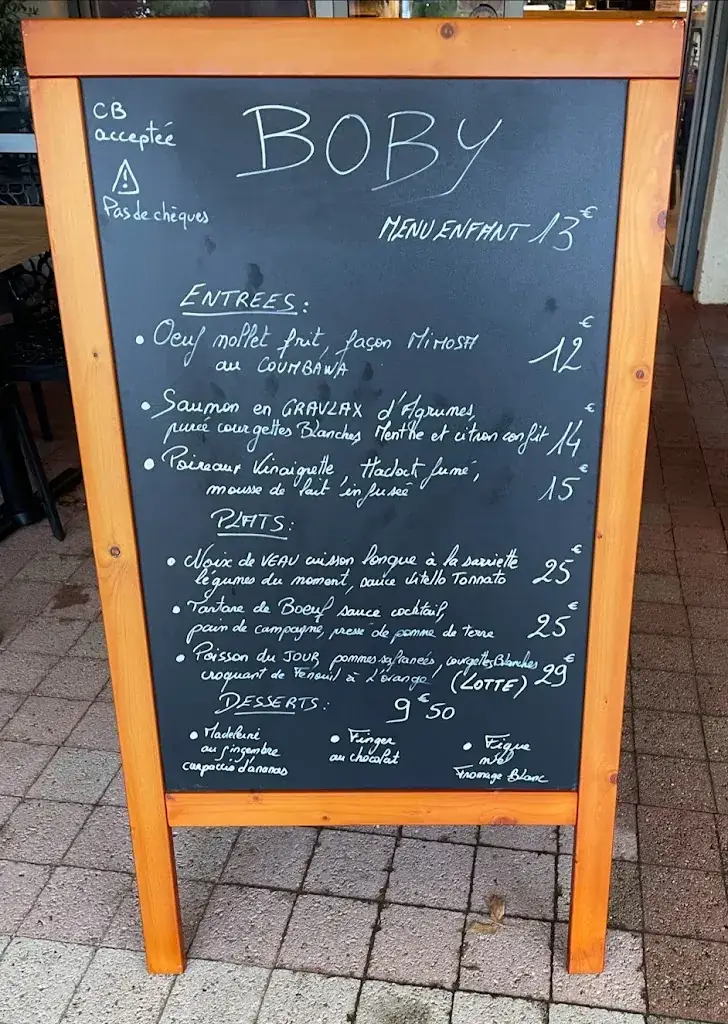 CB
acceptée
BOBY
⚠
Pas de chèques
MENU ENFANT 13€
ENTREES:
• Oeuf mollet frit, façon MIMOSA
au COUMBAWA 12€
• Saumon en GRAVLAX d'Agrumes,
purée courgettes Blanches Menthe et citron confit 14€
• Poireaux Vinaigrette, Hadock fumé,
mousse de lait infusée 15€
PLATS:
• Noix de VEAU cuisson longue à la sarriette
légumes du moment, sauce vitello Tonnato 25€
• Tartare de Boeuf sauce cocktail,
pain de campagne, pressé de pomme de terre 25€
• Poisson du JOUR, pommes safranées, courgettes Blanches
croquant de Fenouil à L'orange (LOTTE) 29€
DESSERTS: 9€50
• Madeleine
au gingembre
carpaccio d'ananas
• Finger
au chocolat
• Figue
miel
Fromage Blanc